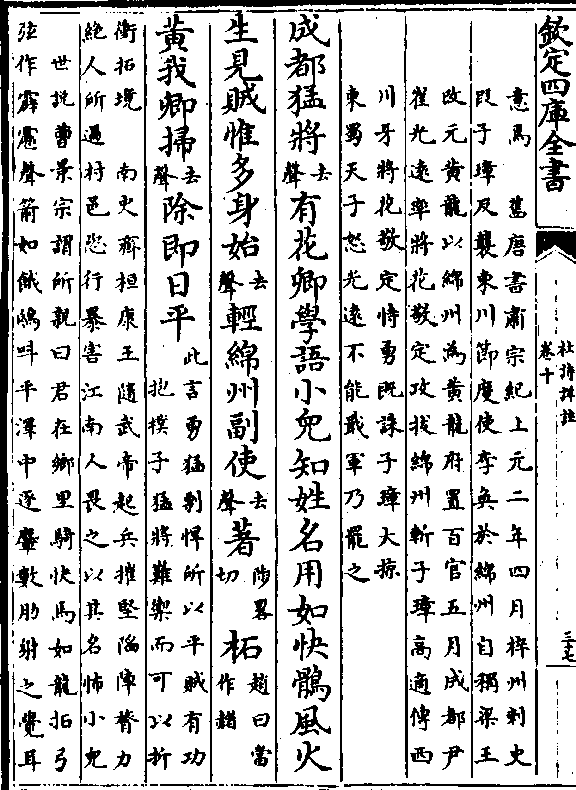 欽定四庫全書
杜詩詳註
卷十
三十七
意焉　舊唐書肅宗紀上元二年四月梓州刺史
段子璋反襲東川節度使李奐於綿州自稱梁王
改元黃龍以綿州為黃龍府置百官五月成都尹
崔光遠率將花敬定攻拔綿州斬子璋高適傳西
川牙將花敬定恃勇既誅子璋大掠
東蜀天子怒光遠不能戢軍乃罷之
成都猛將去聲有花卿學語小兒知姓名用如快鶻風火
生見賊惟多身始去聲輕綿州副使去聲著陟畧切柘趙曰當作赭
黃我卿掃去聲除即日平　此言勇猛剽悍所以平賊有功
抱樸子猛將難禦而可以折
衝拓境　南史齊桓康王隨武帝起兵摧堅陷陣膂力
絕人所過村邑恣行暴害江南人畏之以其名怖小兒
世說曹景宗謂所親曰君在鄉里騎快馬如龍拓弓
弦作霹靂聲箭如餓鴟叫平澤中逐麞數肋射之覺耳